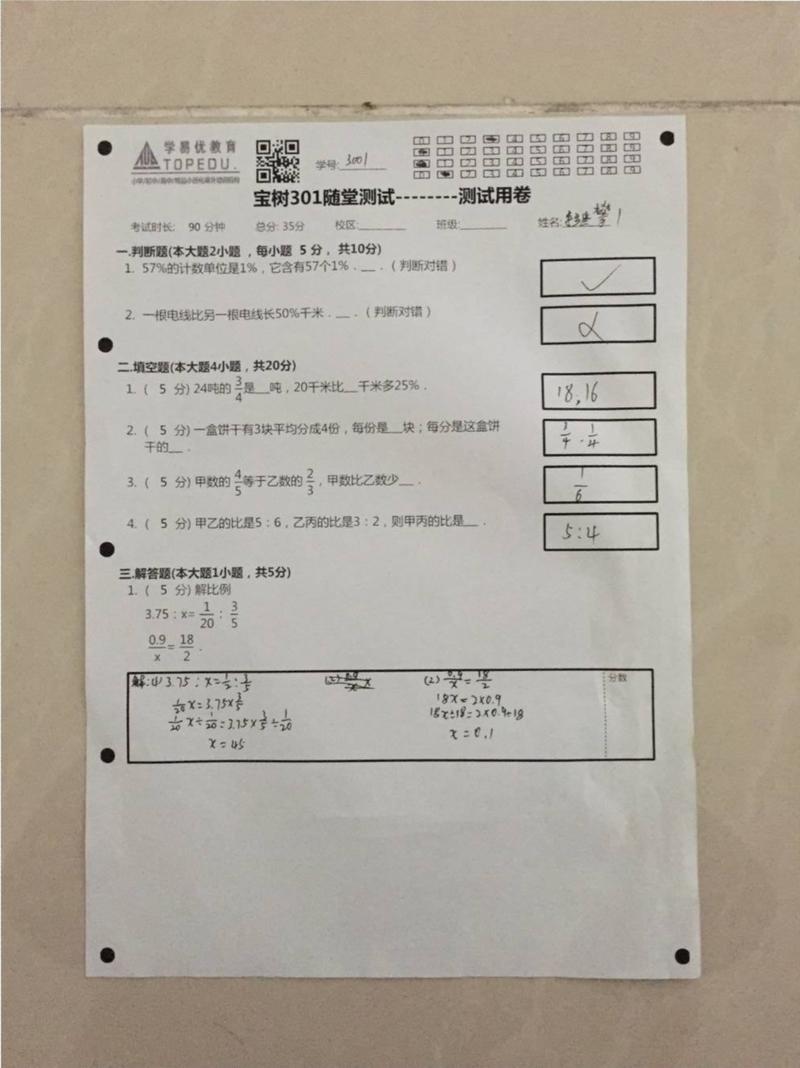 学易优教育
TOPEDU.
学号: 3001
[0] [1] [2] [4] [5] [6] [7] [8] [9]
[1] [2] [3] [4] [5] [6] [7] [8] [9]
[1] [2] [3] [4] [5] [6] [7] [8] [9]
[0] [2] [3] [4] [5] [6] [7] [8] [9]
宝树301随堂测试--------测试用卷
考试时长: 90 分钟 总分: 35分 校区:________ 班级:________ 姓名:
一.判断题(本大题2小题，每小题 5 分，共10分)
1. 57%的计数单位是1%，它含有57个1%．__．(判断对错)
✓
2. 一根电线比另一根电线长50%千米．__．(判断对错)
×
二.填空题(本大题4小题，共20分)
1. ( 5 分) 24吨的 3/4 是__吨，20千米比__千米多25%．
18,16
2. ( 5 分) 一盒饼干有3块平均分成4份，每份是__块；每分是这盒饼
干的__．
3/4 . 1/4
3. ( 5 分) 甲数的 4/5 等于乙数的 2/3，甲数比乙数少__．
1/6
4. ( 5 分) 甲乙的比是5：6，乙丙的比是3：2，则甲丙的比是__．
5:4
三.解答题(本大题1小题，共5分)
1. ( 5 分) 解比例
3.75：x= 1/20 ： 3/5
0.9/x = 18/2 ．
解:(1) 3.75 : x = 1/2 : 3/5 (2) 0.9/x = 18/2 分数
1/20 x = 3.75 × 3/5 18x = 2×0.9
1/20 x ÷ 1/20 = 3.75 × 3/5 ÷ 1/20 18x÷18 = 2×0.9÷18
x = 45 x = 0.1